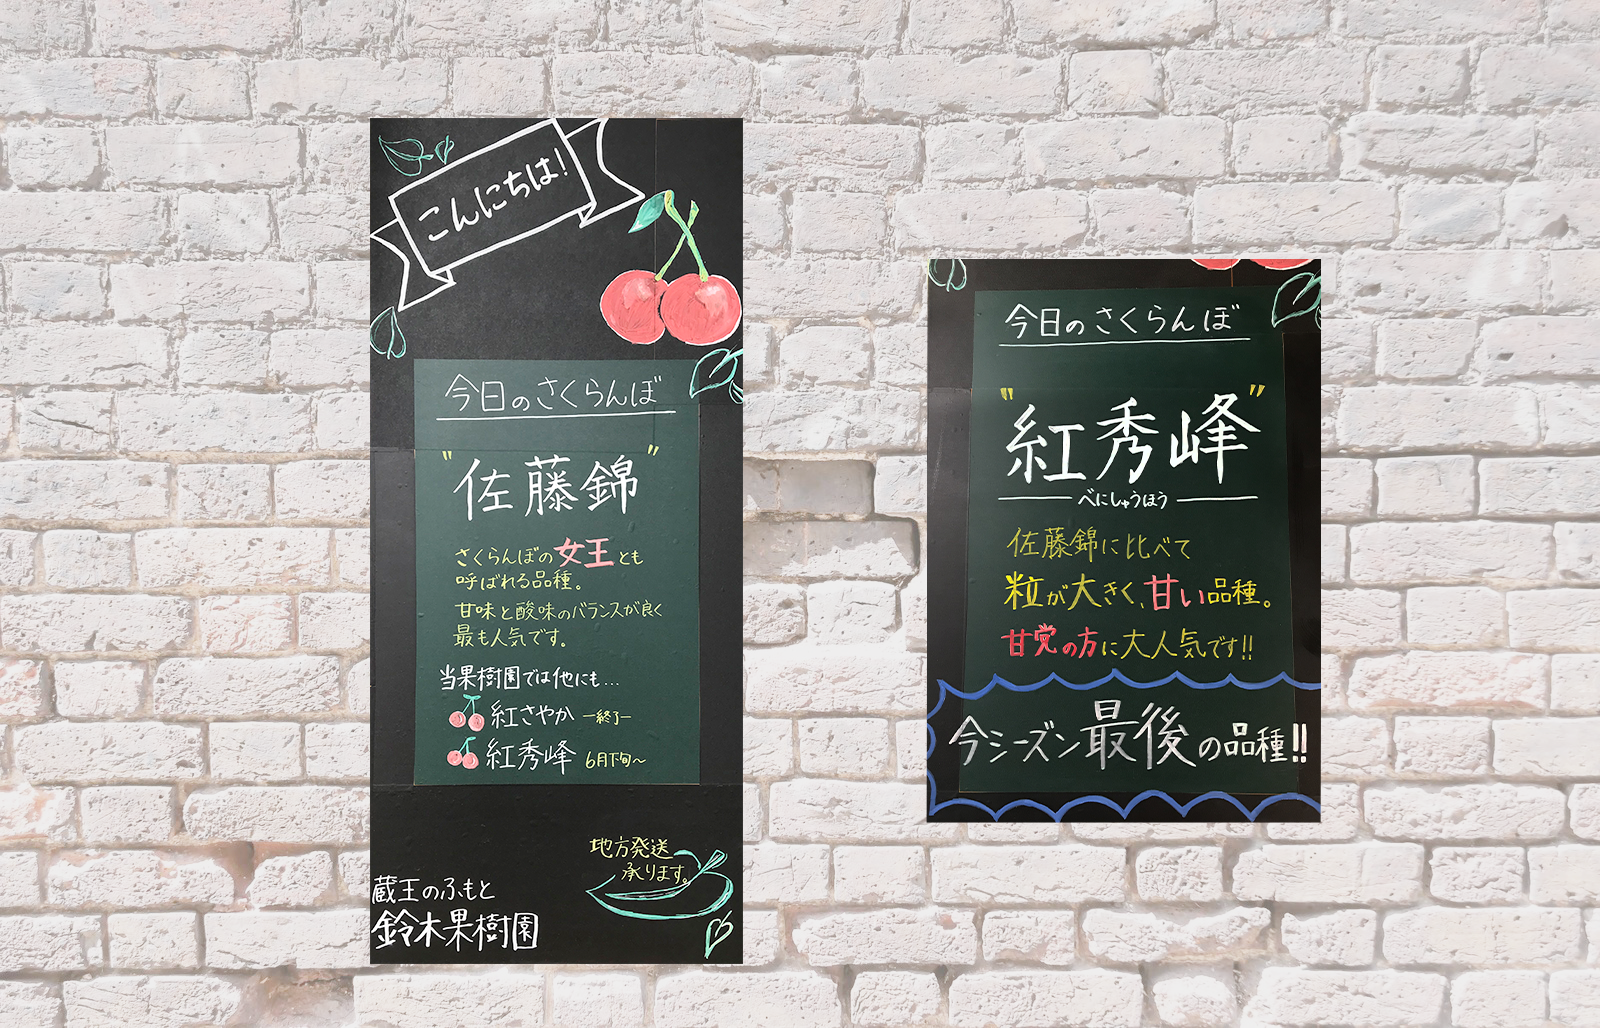 こんにちは!
今日のさくらんぼ
"佐藤錦"
さくらんぼの女王とも
呼ばれる品種。
甘味と酸味のバランスが良く
最も人気です。
当果樹園では他にも…
紅さやか －終了－
紅秀峰 6月下旬～
地方発送
承ります。
蔵王のふもと
鈴木果樹園
今日のさくらんぼ
"紅秀峰"
べにしゅうほう
佐藤錦に比べて
粒が大きく、甘い品種。
甘党の方に大人気です!!
今シーズン最後の品種!!